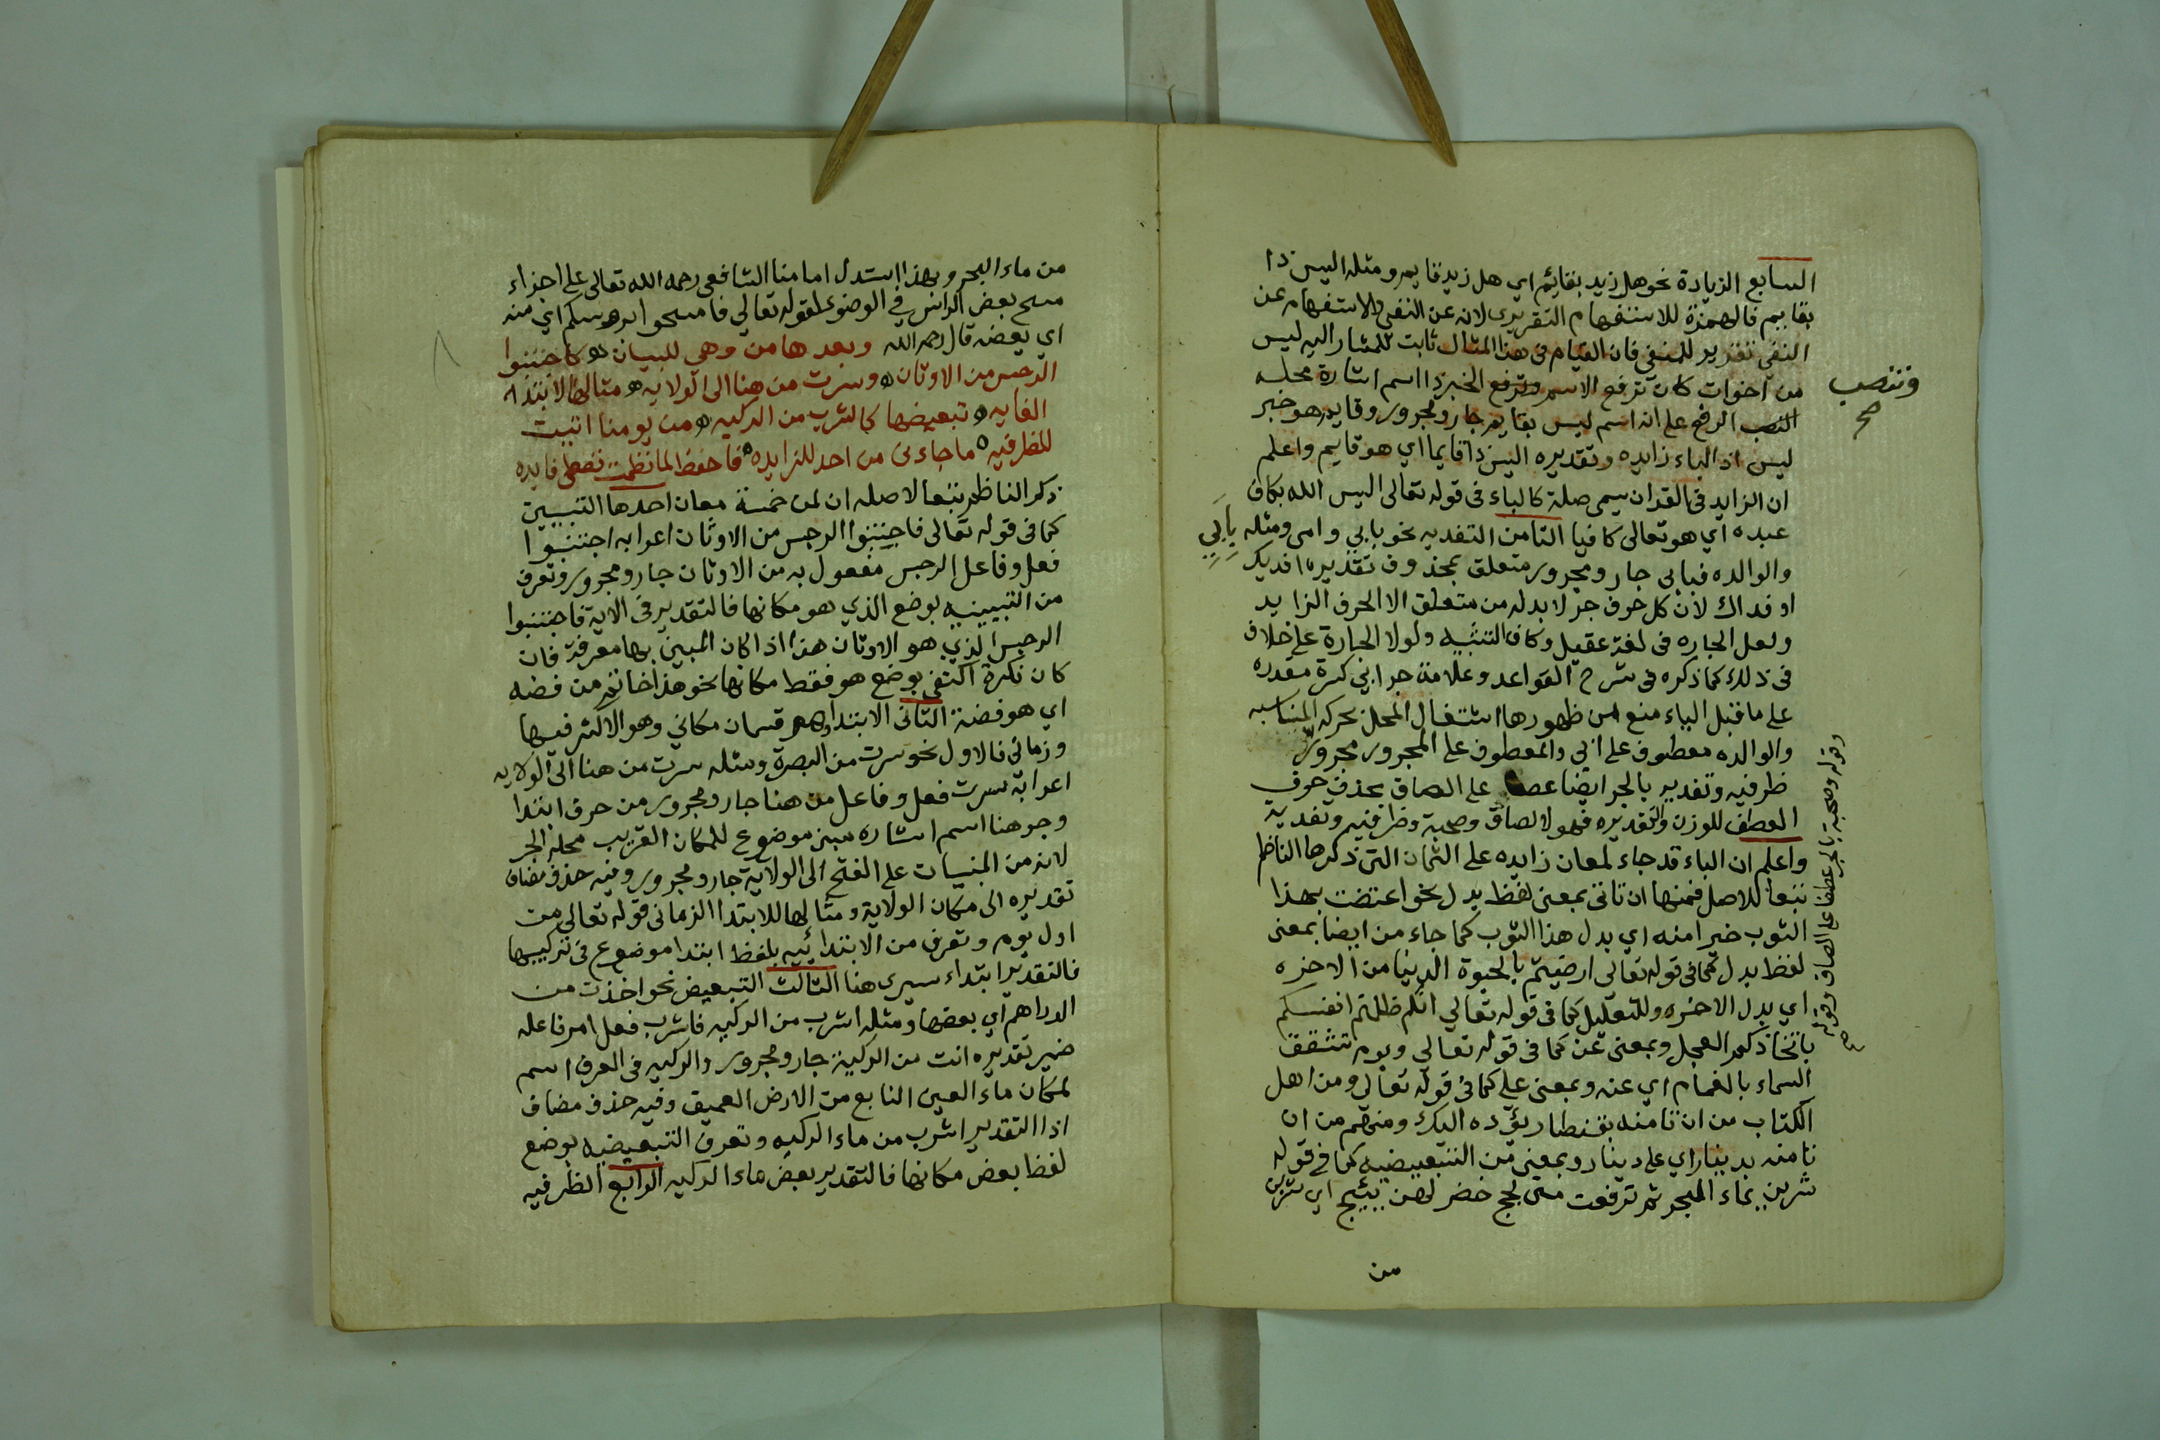 السابع الزيادة نحو هل زيد بقايم اي هل زيد قايم ومثله اليس ذا
بقايم فالهمزة للاستفهام التقريري لانه عن النفي والاستفهام عن
النفي تقرير للمنفي فان القيام في هذا المثال ثابت للمشار اليه ليس
من اخوات كان ترفع الاسم وترفع الخبر ذا اسم اشارة محله
وتنصب صح
النصب الرفع على انه اسم ليس بقايم جار ومجرور وقايم هو خبر
ليس اذ الباء زايده وتقديره اليس ذا قايما اي هو قايم واعلم
ان الزايد في القران يسمى صلة كالباء في قوله تعالى اليس الله بكاف
عبده اي هو تعالى كافيا الثامن التفديه نحو بابي وامي ومثله بِأَبِي
والوالده فبابي جار ومجرور متعلق بمحذوف تقديره افديك
او فداك لان كل حرف جر لا بد له من متعلق الا الحرف الزايد
ولعل الجاره في لغة عقيل وكاف التشبيه ولولا الجارة على خلاف
في ذلك كما ذكره في شرح القواعد وعلامة جر ابي كسرة مقدره
على ما قبل الياء منع من ظهورها اشتغال المحل بحركه المناسبه
والوالده معطوف على ابي والمعطوف على المجرور مجرور
ظرفيه وتفديه بالجر ايضا على الصاق بحذف حرف
العطف للوزن والتقديره فهو لالصاق وصحبة وظرفيه وتفدية
وقوله وصحبة بالجر عطفا على الصاق وقوله صح
واعلم ان الباء قد جاء لمعان زايده على الثمان التي ذكرها الناظم
تبعا للاصل فمنها ان تاتي بمعنى لفظ بدل نحو اعتضت بهذا
الثوب خيرا منه اي بدل هذا الثوب كما جاء من ايضا بمعنى
لفظ بدل كما في قوله تعالى ارضيتم بالحيوة الدينا من الاخره
اي بدل الاخره وللتعليل كما في قوله تعالي انكم ظلمتم انفسكم
باتخاذكم العجل وبمعنى عن كما في قوله تعالي ويوم تشقق
السماء بالغمام اي عنه وبمعنى على كما في قوله تعالي ومن اهل
الكتاب من ان تامنه بقنطار يؤده اليك ومنهم من ان
تامنه بدينار اي على دينار وبمعنى من التبعيضيه كما في قوله
شربن بماء البحر ثم ترفعت متى لجج خضر لهن نئيج اي شربن
من
من ماء البحر وبهذا استدل امامنا الشافعي رحمه الله تعالى على اجزاء
مسح بعض الراس في الوضوء لقوله تعالي فامسحوا بروسكم اي منه
اي بعضه قال رحمه الله وبعدها من وهي للبيان كاجتنبوا
الرجس من الاوثان وسرت من هنا الى الولايه مثالها لابتداء
الغايه تبعيضها كاشرب من الركيه من يومنا اتيت
للظرفيه ما جاءني من احد للزايده فاحفظ لما نظمت تعطى فايده
ذكر الناظم تبعا لاصله ان لمن خمسة معان احدها التبيين
كما في قوله تعالى فاجتنبوا الرجس من الاوثان اعرابه اجتنبوا
فعل وفاعل الرجس مفعول به من الاوثان جار ومجرور وتعرف
من التبيينيه بوضع الذي هو مكانها فالتقدير في الاية فاجتنبوا
الرجس الذي هو الاوثان هذا اذا كان المبين بها معرفة فان
كان نكرة اكتفي بوضع هو فقط مكانها نحو هذا خاتم من فضه
اي هو فضة الثاني الابتدا وهو قسمان مكاني وهو الاكثر فيها
وزماني فالاول نحو سرت من البصرة ومثله سرت من هنا الى الولايه
اعرابه سرت فعل وفاعل من هنا جار ومجرور من حرف ابتدا
وجر هنا اسم اشاره مبني موضوع للمكان القريب محله الجر
لانه من المبنيات على الفتح الى الولاية جار ومجرور وفيه حذف مضاف
تقديره الى مكان الولاية ومثالها للابتدا الزماني قوله تعالى من
اول يوم وتعرف من الابتدائيه بلفظ ابتدا موضوع في تركيبها
فالتقدير ابتداء سيري هنا الثالث التبعيض نحو اخذت من
الدراهم اي بعضها ومثله اشرب من الركيه فاشرب فعل امر فاعله
ضمير تقديره انت من الركية جار ومجرور والركيه في العرف اسم
لمكان ماء العين النابع من الارض العميق وفيه حذف مضاف
اذا التقدير اشرب من ماء الركيه وتعرف التبعيضيه بوضع
لفظ بعض مكانها فالتقدير بعض ماء الركيه الرابع الظرفيه